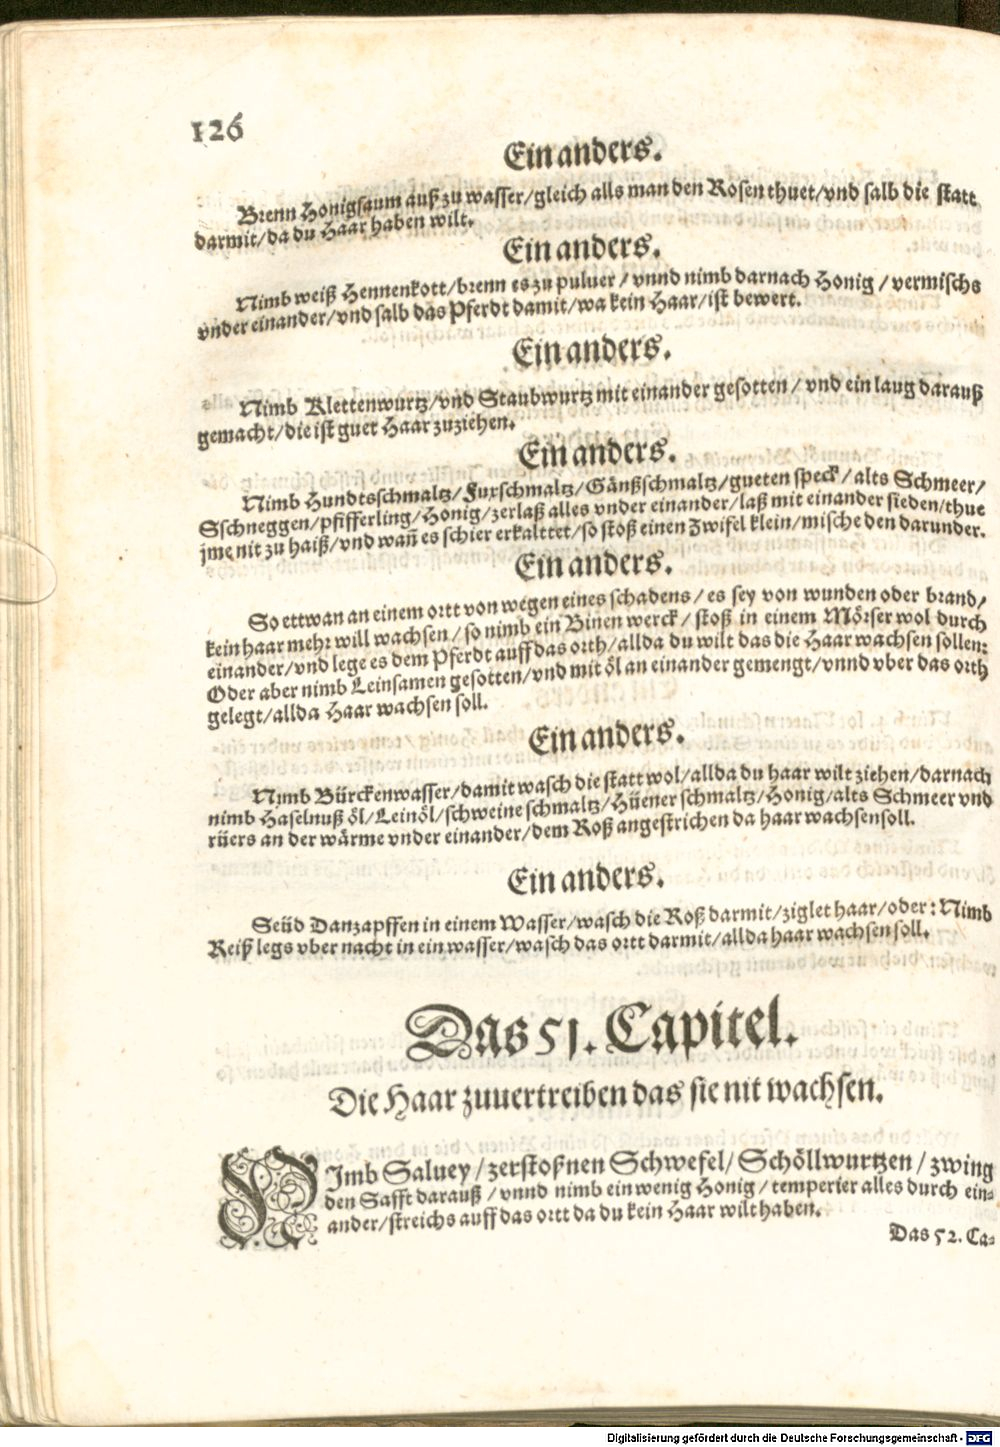 126
Ein anders.
Brenn Honigsaum auß zu wasser/gleich alls man den Rosen thuet/vnd salb die statt
darmit/da du Haar haben wilt.
Ein anders.
Nimb weiß Hennenkott/brenn es zu puluer/vnnd nimb darnach Honig/vermischs
vnder einander/vnd salb das Pferdt damit/wa kein Haar/ist bewert.
Ein anders.
Nimb Klettenwurtz/vnd Staubwurtz mit einander gesotten/vnd ein laug darauß
gemacht/die ist guet Haar zuziehen.
Ein anders.
Nimb Hundtsschmaltz/Fuxschmaltz/Gänßschmaltz/gueten speck/alts Schmeer/
Sschneggen/pfifferling/Honig/zerlaß alles vnder einander/laß mit einander sieden/thue
jme nit zu haiß/vnd wañ es schier erkalttet/so stoß einen Zwifel klein/mische den darunder.
Ein anders.
So ettwan an einem ortt von wegen eines schadens/es sey von wunden oder brand/
kein haar mehr will wachsen/so nimb ein Binen werck/stoß in einem Mörser wol durch
einander/vnd lege es dem Pferdt auff das orth/allda du wilt das die Haar wachsen sollen:
Oder aber nimb Leinsamen gesotten/vnd mit öl an einander gemengt/vnnd vber das orth
gelegt/allda Haar wachsen soll.
Ein anders.
Nimb Bürckenwasser/damit wasch die statt wol/allda du haar wilt ziehen/darnach
nimb Haselnuß öl/Leinöl/schweine schmaltz/Hüener schmaltz/Honig/alts Schmeer vnd
rüers an der wärme vnder einander/dem Roß angestrichen da haar wachsen soll.
Ein anders.
Seüd Danzapffen in einem Wasser/wasch die Roß darmit/ziglet haar/oder: Nimb
Reiß legs vber nacht in ein wasser/wasch das ortt darmit/allda haar wachsen soll.
Das 51. Capitel.
Die Haar zuuertreiben das sie nit wachsen.
NImb Saluey/zerstoßnen Schwefel/Schöllwurtzen/zwing
den Safft darauß/vnnd nimb ein wenig Honig/temperier alles durch ein-
ander/streichs auff das ortt da du kein Haar wilt haben.
Das 52. Ca-
Digitalisierung gefördert durch die Deutsche Forschungsgemeinschaft - DFG